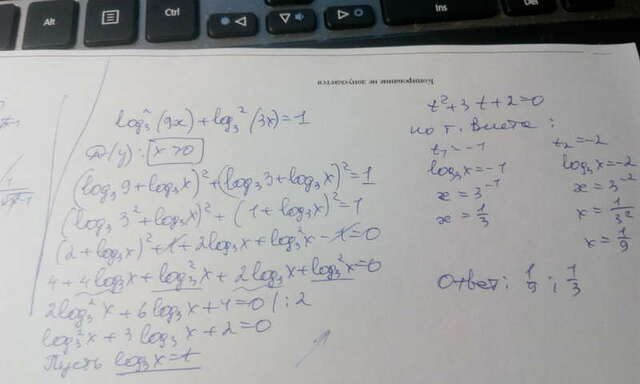 Alt
Ctrl
Ins
Копирование не допускается
log₃²(9x)+log₃²(3x)=1
x>0
(log₃9+log₃x)²+(log₃3+log₃x)²=1
(log₃3²+log₃x)²+(1+log₃x)²=1
(2+log₃x)²+1+2log₃x+log₃²x-1=0
4+4log₃x+log₃²x+2log₃x+log₃²x=0
2log₃²x+6log₃x+4=0 |:2
log₃²x+3log₃x+2=0
Пусть log₃x=t
t²+3t+2=0
по т. Виета:
t₁=-1 t₂=-2
log₃x=-1 log₃x=-2
x=3⁻¹ x=3⁻²
x=1/3 x=1/3²
x=1/9
Ответ: 1/9; 1/3